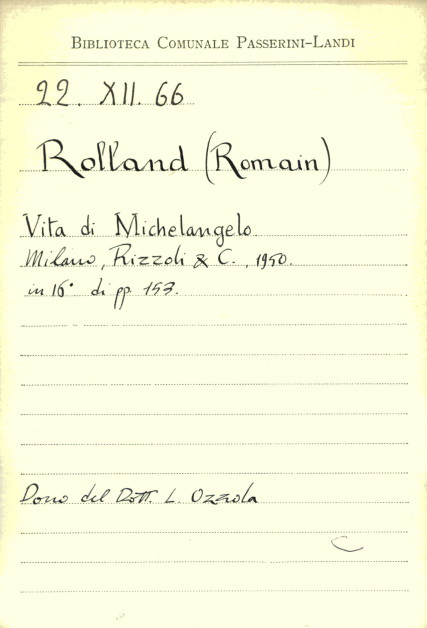 Biblioteca Comunale Passerini-Landi
22. XII. 66
Rolland (Romain)
Vita di Michelangelo.
Milano, Rizzoli & C., 1950.
in 16° di pp. 153.
Dono del Dott. L. Ozzola